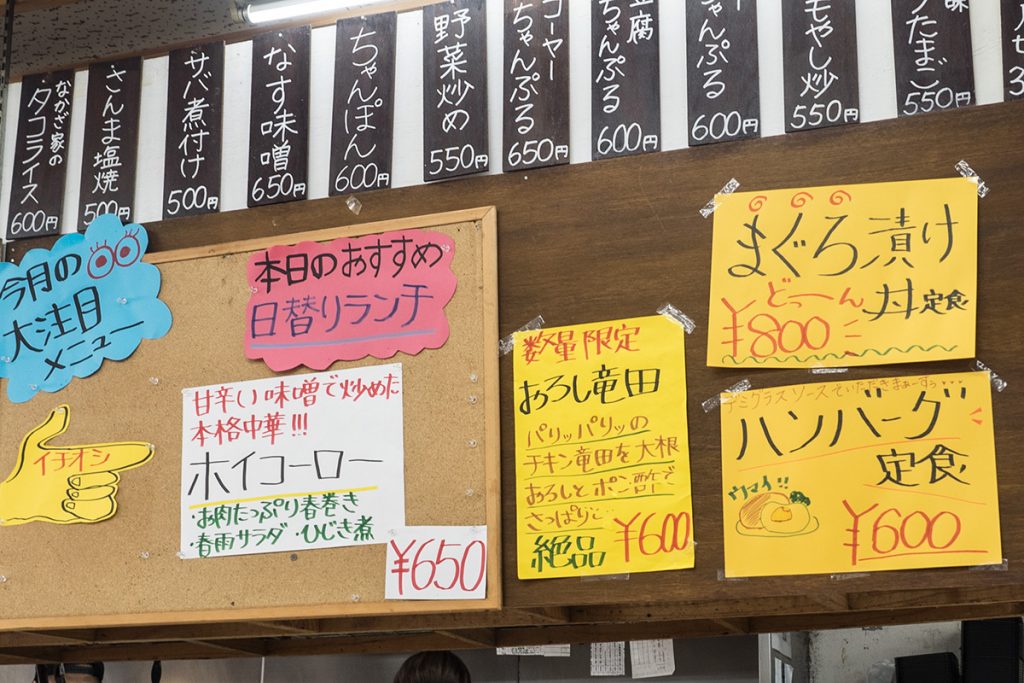 なかざ家の
タコライス
600円
さんま塩焼
500
サバ煮付け
500円
なす味噌
650円
ちゃんぽん
600円
野菜炒め
550円
コーヤー
ちゃんぷる
650円
腐
ちゃんぷる
600円
ちゃんぷる
600円
もやし炒
550円
たまご
550円
今月の
大注目
メニュー
本日のおすすめ
日替りランチ
イチオシ
甘辛い味噌で炒めた
本格中華!!!
ホイコーロー
・お肉たっぷり春巻き
・春雨サラダ ・ひじき煮
¥650
数量限定
おろし竜田
パリッパリッの
チキン竜田を大根
おろしとポン酢で
さっぱりと
絶品
¥600
まぐろ漬け
どっーん
丼定食
¥800
デミグラスソースでいただきまぁーすっ
ハンバーグ
定食
ウマイ!!
¥600